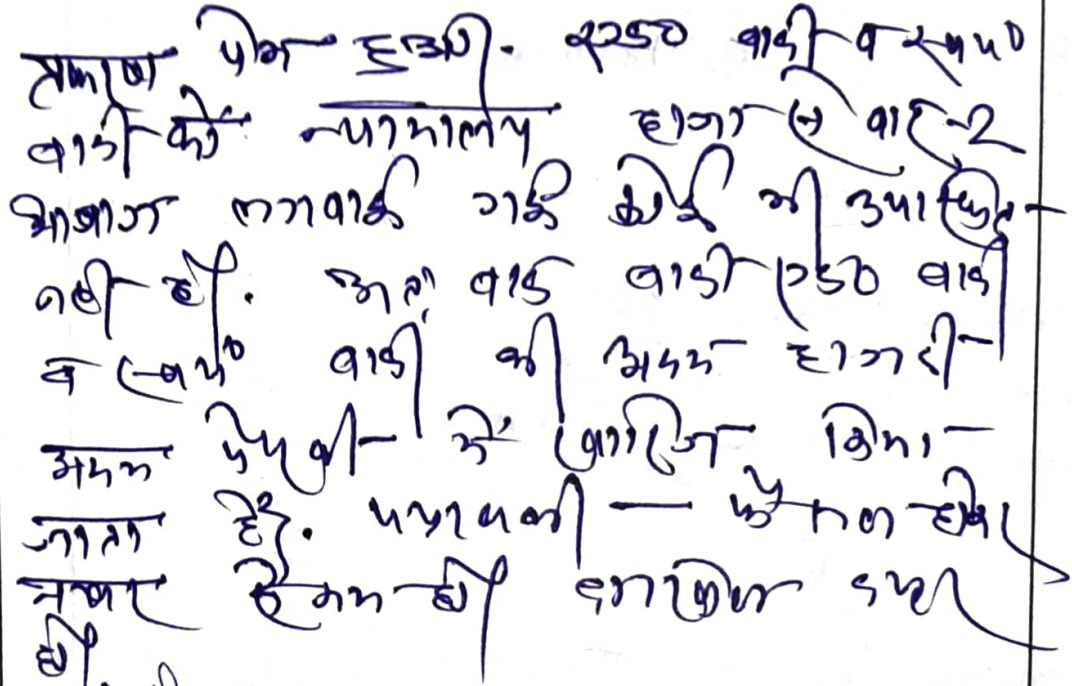 प्रकरण पेश हुआ. एडवो वादी व स्वयं
वादी को न्यायालय द्वारा बार-2
आवाज लगवाई गई कोई भी उपस्थित
नहीं है. अतः वाद वादी एडवो वादी
व स्वयं वादी की अदम हाजरी
अदम पैरवी में खारिज किया
जाता है. पत्रावली फैसल होकर
नम्बर से कम हो दाखिल दफ्तर
हो